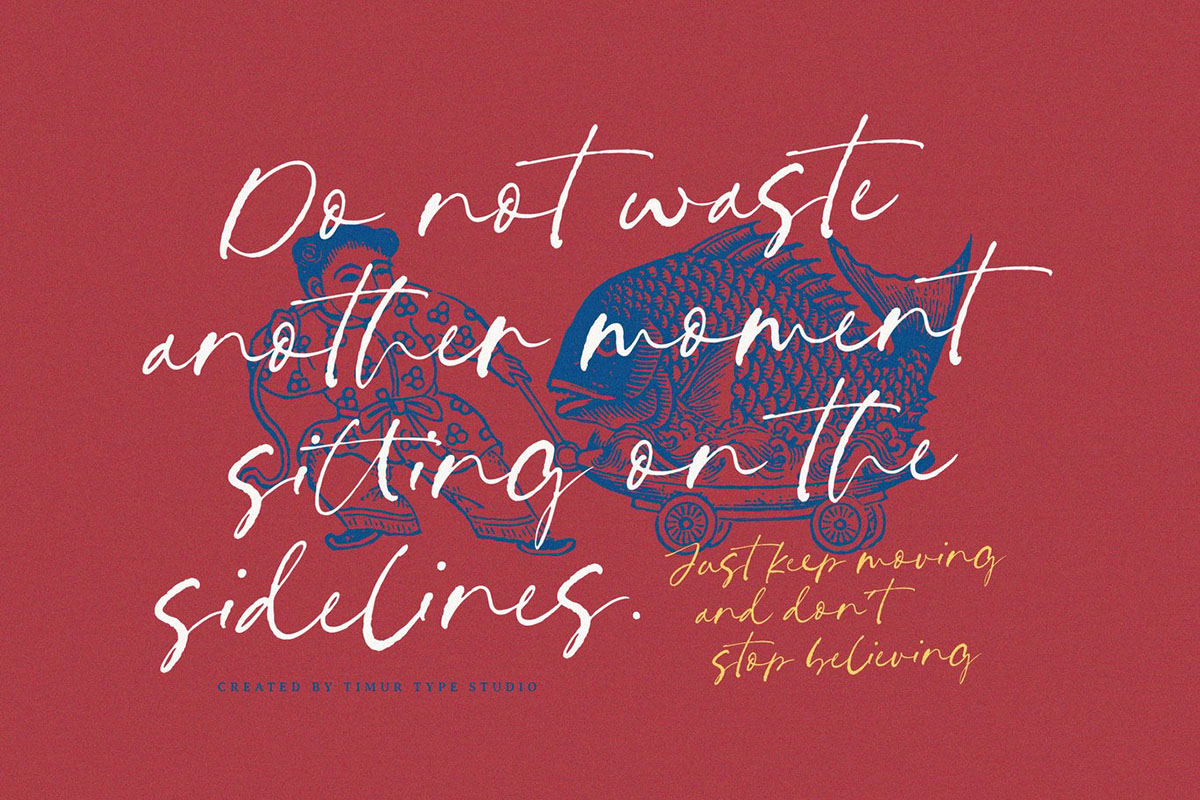 Do not waste
another moment
sitting on the
sidelines.
Just keep moving
and don't
stop believing
CREATED BY TIMUR TYPE STUDIO